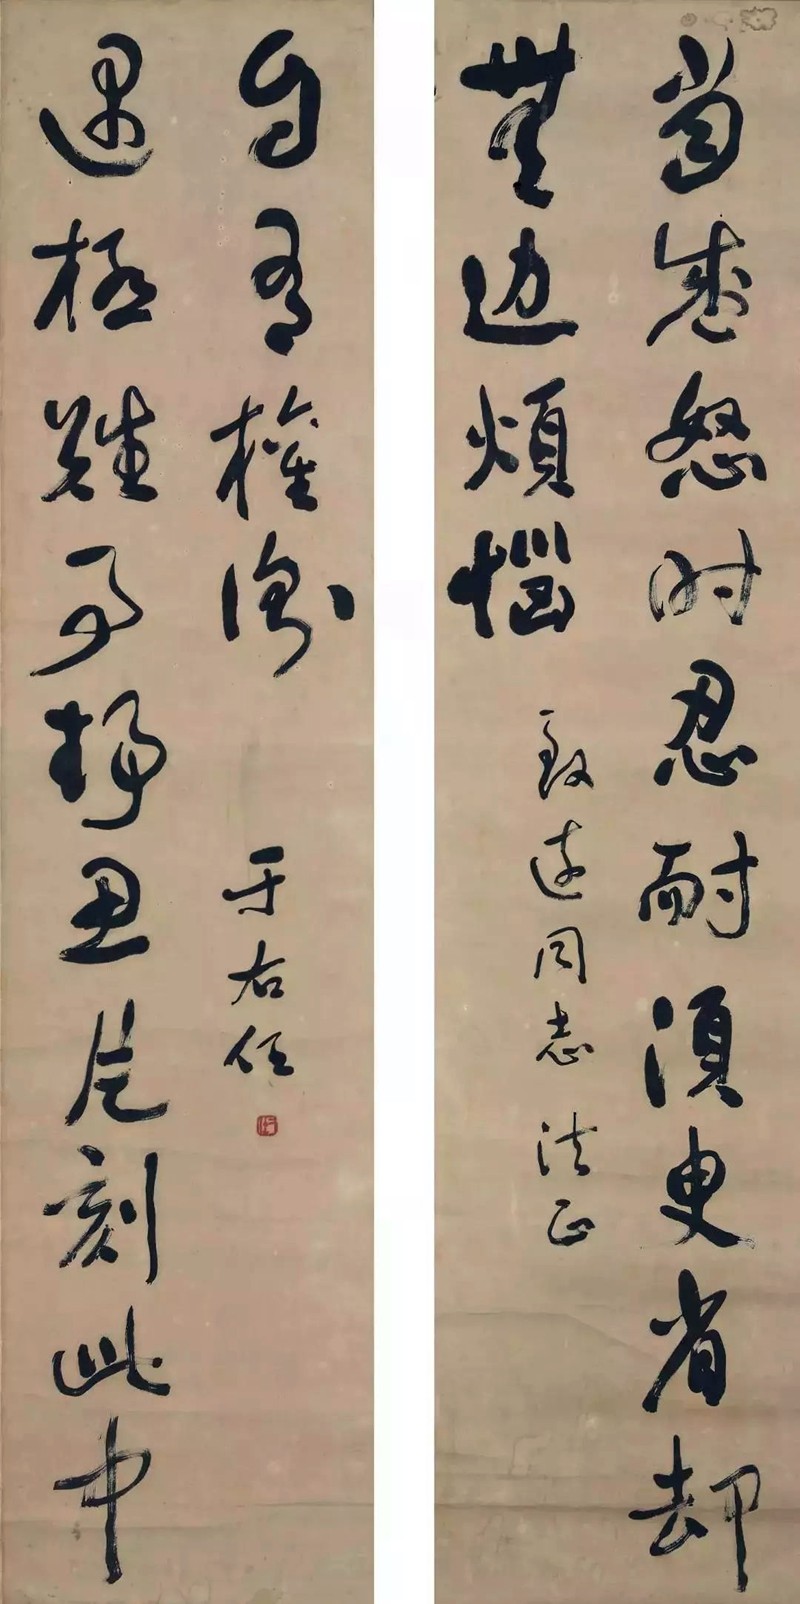 當盛怒时忍耐須臾省却
無边煩惱
致遠同志 法正
遇極難事靜思片刻此中
自有權衡
于右任